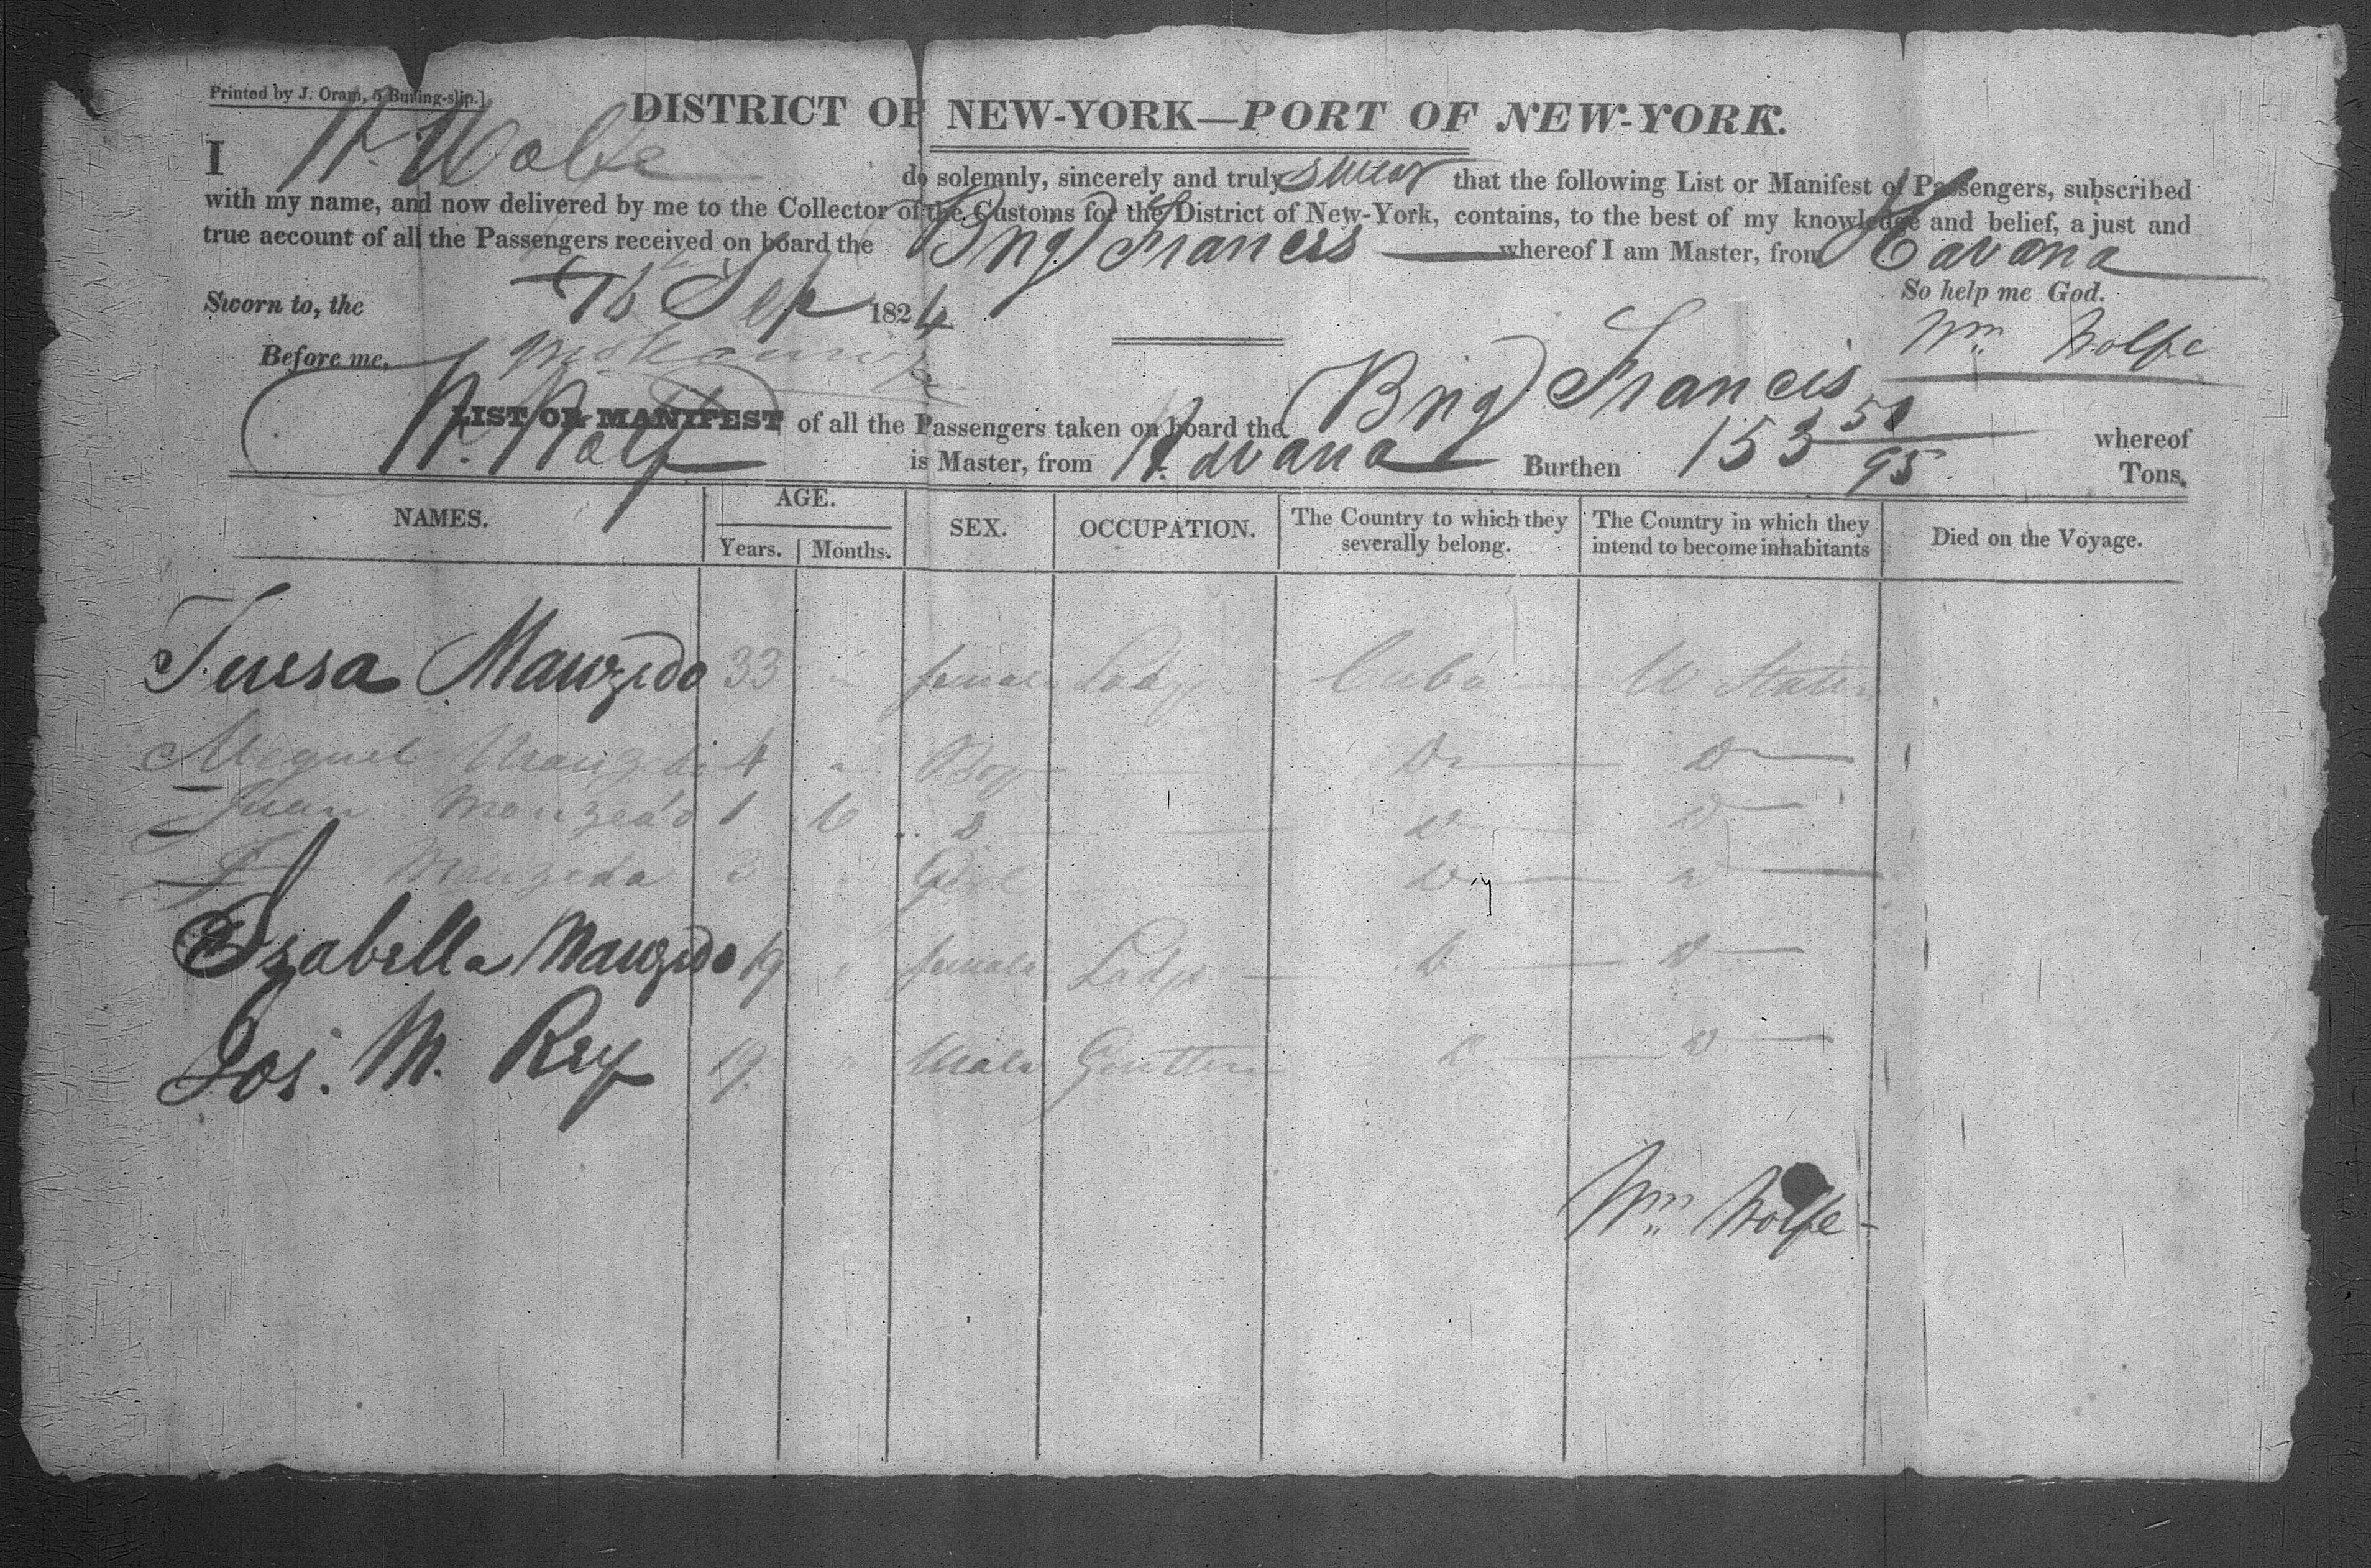 Printed by J. Oram, 5 Burling-slip.]
DISTRICT OF NEW-YORK—PORT OF NEW-YORK.
I W. Wolfe do solemnly, sincerely and truly swear that the following List or Manifest of Passengers, subscribed
with my name, and now delivered by me to the Collector of the Customs for the District of New-York, contains, to the best of my knowledge and belief, a just and
true account of all the Passengers received on board the Brig Francis whereof I am Master, from Havana
So help me God.
Sworn to, the 16 Sep 1824
Wm Wolfe
Before me,
LIST OR MANIFEST of all the Passengers taken on board the Brig Francis whereof
W. Wolf is Master, from Havana Burthen 153 50/95 Tons.
NAMES. AGE. Years. Months. SEX. OCCUPATION. The Country to which they severally belong. The Country in which they intend to become inhabitants Died on the Voyage.
Teresa Manzedo 33 " female Lady Cuba U States
Miguel Manzedo 4 " Boy Do Do
Juan Manzedo 1 6 Do Do Do
Manzeda 3 " Girl Do Do
Isabella Manzedo 19 " female Lady Do Do
Jos. M. Rey 19 " Male Gentlem Do Do
Wm Wolfe